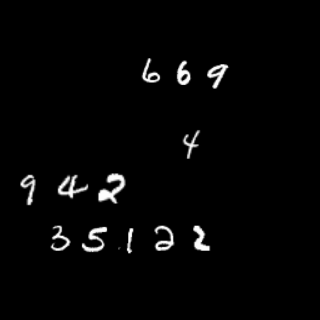 669
4
942
35122